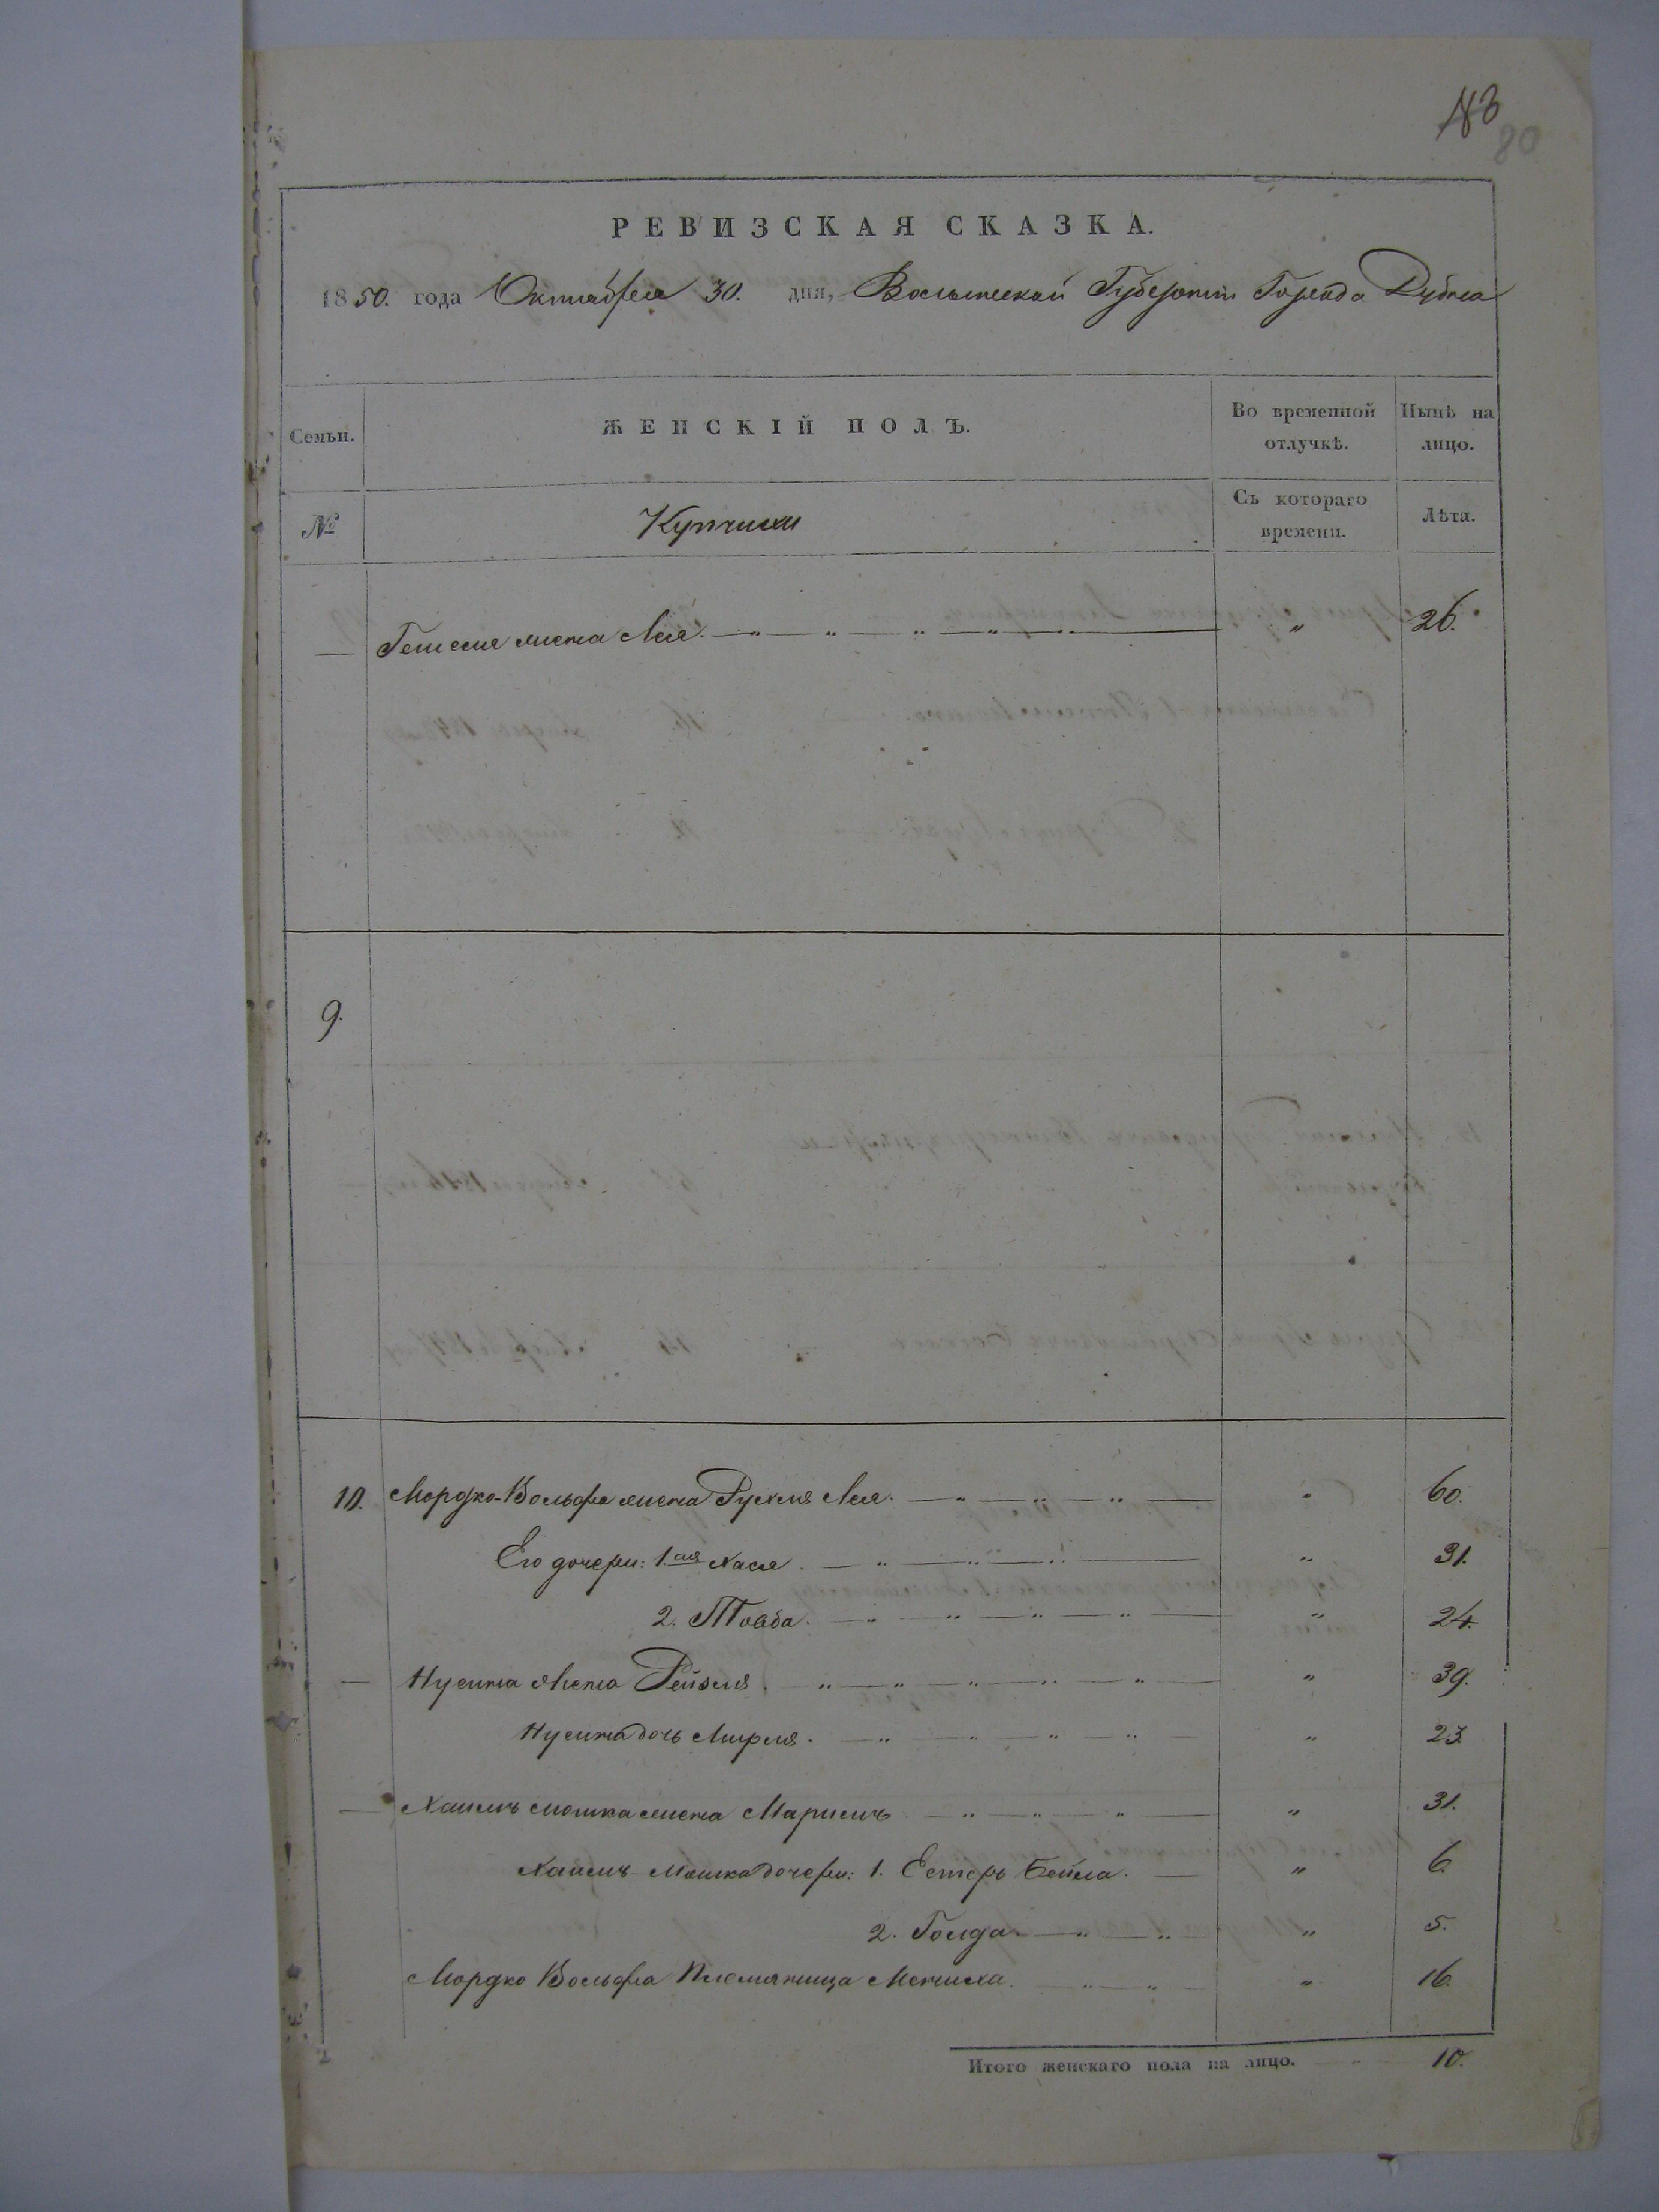 80
РЕВИЗСКАЯ СКАЗКА.
1850. года Октября 30. дня, Волынской Губернии Города Дубна
Семьи.
ЖЕНСКІЙ ПОЛЪ.
Во временной отлучкѣ.
Нынѣ на лицо.
№
Купчихи
Съ котораго времени.
Лѣта.
— жена Лея. — „ — „ — „ — „ — „ — „ 26.
9.
10. Мордко-Вольфа жена Рухля Лея. — „ — „ — „ — „ 60.
Его дочери: 1.ая Хася. — „ — „ — „ — „ 31.
2. Тойба. — „ — „ — „ — „ — „ 24.
— Нусина жена Рейзля. „ — „ — „ — „ — „ — „ 39.
Нусина дочь Мирля. — „ — „ — „ — „ — „ 23.
— Хаимъ Мошка жена Маримъ — „ — „ — „ — „ 31.
Хаимъ-Мошка дочери: 1. Естеръ Бейла. — „ 6.
2. Голда. — „ — „ „ 5.
Мордко Вольфа Племянница Мениха. — „ — „ — „ 16.
Итого женскаго пола на лицо. — „ — 10.